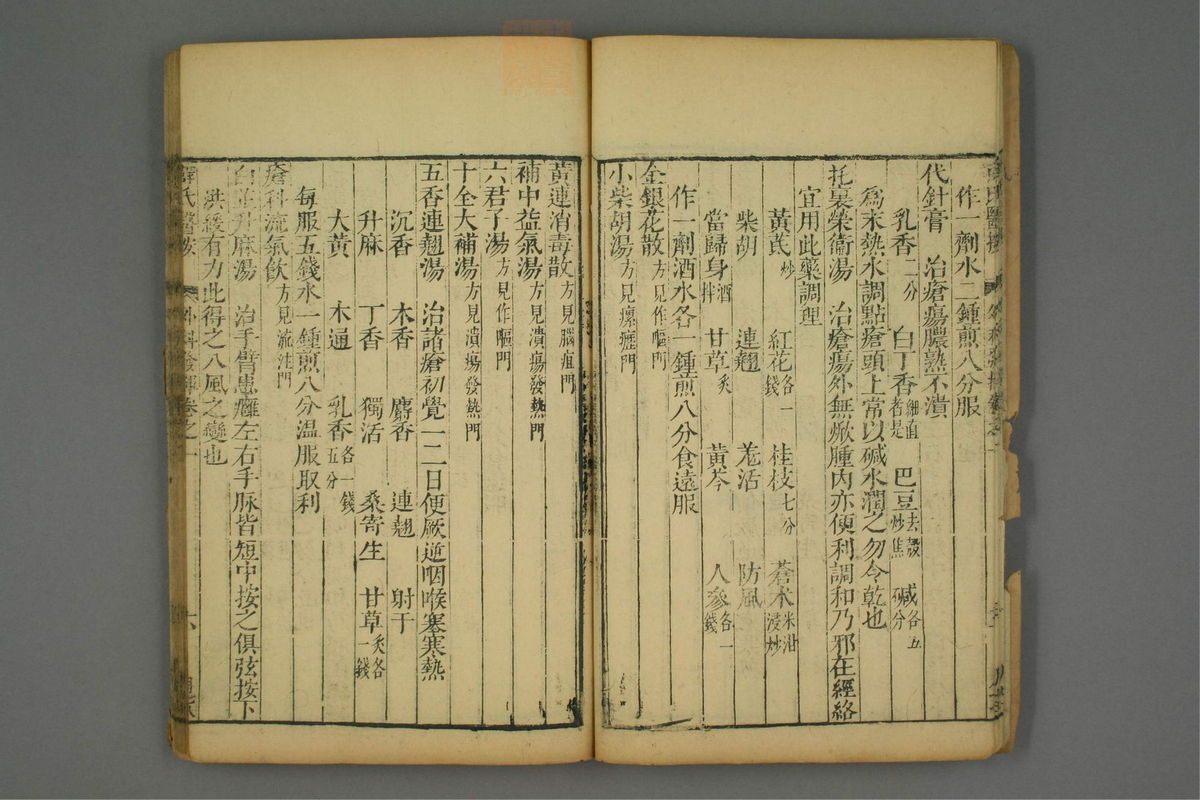 作一劑水二鍾煎八分服
代針膏 治瘡瘍膿熟不潰
乳香二分 白丁香細直者是 巴豆去殼炒焦 碱各五分
為末熱水調點瘡頭上常以碱水潤之勿令乾也
托裏榮衞湯 治瘡瘍外無焮腫內亦便利調和乃邪在經絡
宜用此藥調理
黃芪炒 紅花各一錢 桂枝七分 蒼朮米泔浸炒
柴胡 連翹 羗活 防風
當歸身酒拌 甘草炙 黃芩 人參各一錢
作一劑酒水各一鍾煎八分食遠服
金銀花散方見作嘔門
小柴胡湯方見瘰癧門
黃連消毒散方見腦疽門
補中益氣湯方見潰瘍發熱門
六君子湯方見作嘔門
十全大補湯方見潰瘍發熱門
五香連翹湯 治諸瘡初覺一二日便厥逆咽喉塞寒熱
沉香 木香 麝香 連翹 射干
升麻 丁香 獨活 桑寄生 甘草炙各一錢
大黃 木通 乳香各一錢五分
每服五錢水一鍾煎八分溫服取利
瘡科流氣飲方見流注門
白芷升麻湯 治手臂患癰左右手脉皆短中按之俱弦按下
洪緩有力此得之八風之變也
薛氏醫 外科發揮卷之一